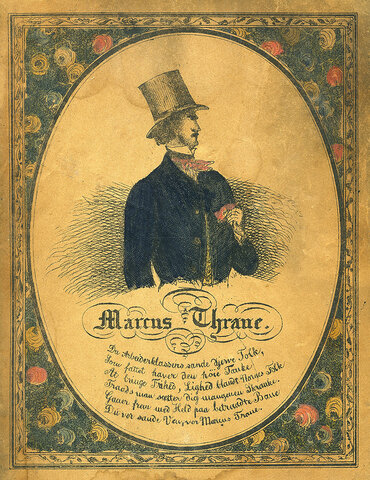 Marcus Thrane.
Du Arbeiderklassens sande djerve Tolk,
Som fattet haver den høie Tanke:
At bringe Frihed, Lighed blandt Norges Folk
Trods man sætter dig mangen Skranke.
Gaaer frem med Held paa betraadte Bane
Du vor sande Ven, vor Marcus Trane.